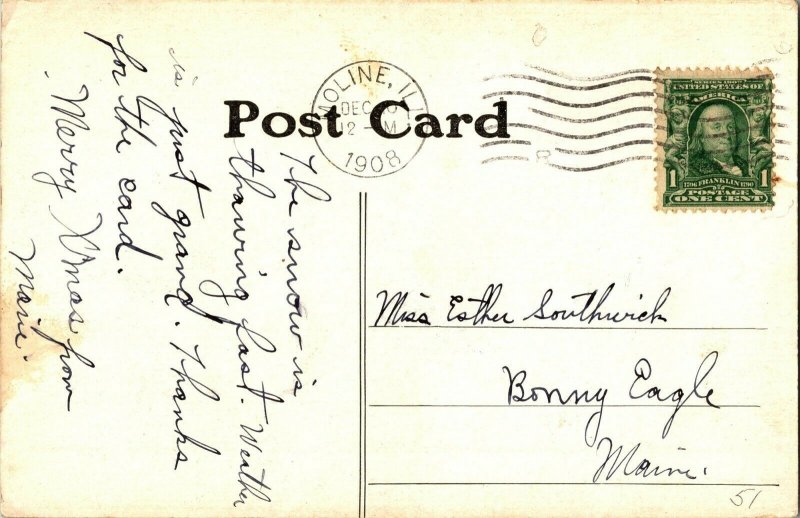 Post Card
MOLINE, ILL
DEC
12 - M
1908
SERIES 1902
UNITED STATES OF
AMERICA
1706 FRANKLIN 1790
1 1
POSTAGE
ONE CENT
The snow is
thawing fast. Weather
is just grand. Thanks
for the card.
Merry X'mas from
Marie.
Miss Esther Southwick
Bonny Eagle
Maine.
51